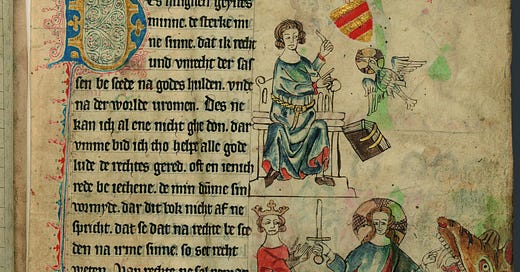 Des hilghen geystes
minne. de sterke mi
ne sinne. dat ik recht
und unrecht der sas
sen be scede na godes hulden. unde
na der wolde vromen. Des ne
kan ich al ene nicht ghe don. dar
umme bid ich tho helpe alle gode
lude de rechtes gered. oft en ienich
rede be iechene. de min dumme sin
vormyde. dar dit bok nicht af ne
spricht. dat se dat na rechte be sce
den na irme sinne. so set recht
weten. Van rechte ne sal neman